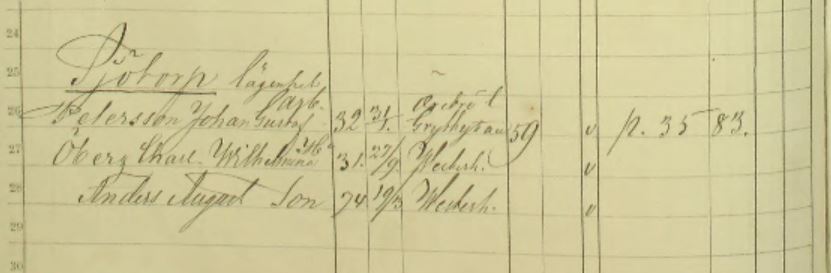 24
25 Sjötorp lägenhet
Arb. Örebro l
26 Petersson Johan Gustaf 32 31/1. Grythyttan 59 v p. 35 83.
27 Öberg Charl. Wilhelmina H 31. 27/9 Weckerh. v
28 Anders August Son 74 19/3 Weckerh. v
29
30